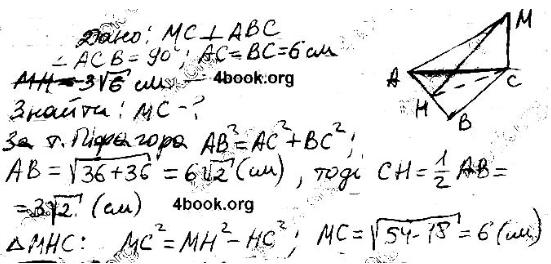 Дано: MC ⊥ ABC
∠ACB = 90°; AC = BC = 6 см
MH = 3√6 см
4book.org
Знайти: MC - ?
За т. Піфагора AB² = AC² + BC²;
AB = √36+36 = 6√2 (см), тоді CH = 1/2 AB =
= 3√2 (см) 4book.org
△MHC: MC² = MH² - HC²; MC = √54-18 = 6 (см)
M
A
C
H
B